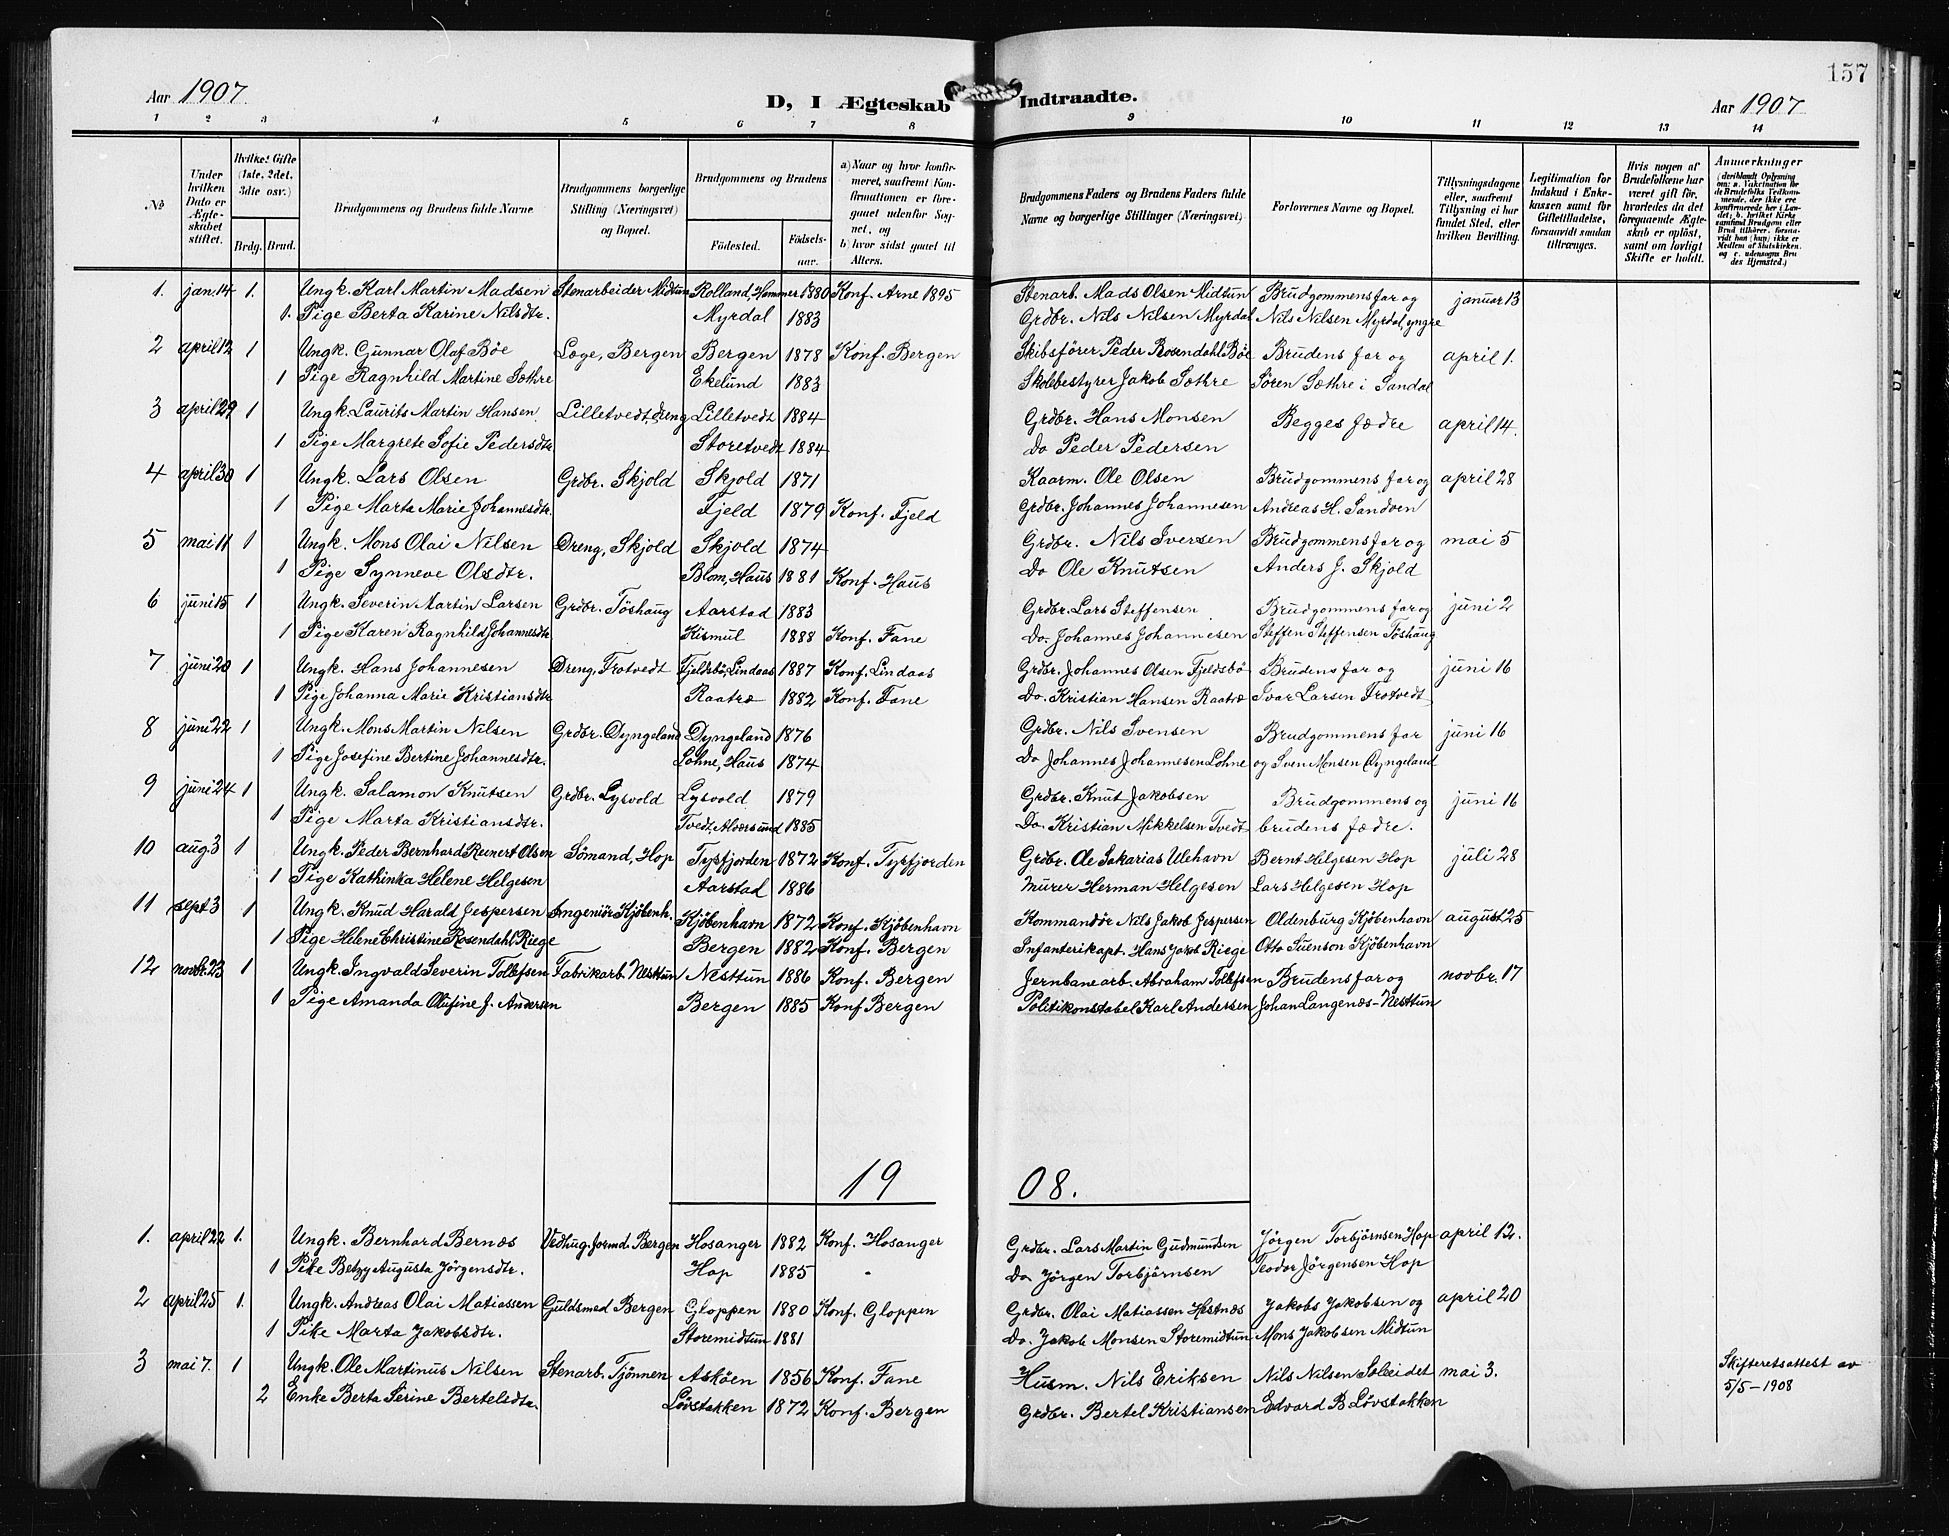 157
Aar 1907.
D, I Ægteskab Indtraadte.
Aar 1907
1 2 3 4 5 6 7 8 9 10 11 12 13 14
No
Under hvilken Dato er Ægteskabet stiftet.
Hvilket Gifte (1ste, 2det, 3die osv.)
Brdg. Brud.
Brudgommens og Brudens fulde Navne.
Brudgommens borgerlige Stilling (Næringsvei) og Bopæl.
Brudgommens og Brudens
Fødested. Fødselsaar.
a) Naar og hvor konfirmeret, saafremt Konfirmationen er foregaaet udenfor Sognet, og
b) hvor sidst gaaet til Alters.
Brudgommens Faders og Brudens Faders fulde Navne og borgerlige Stillinger (Næringsvei).
Forlovernes Navne og Bopæl.
Tillysningsdagene eller, saafremt Tillysning ei har fundet Sted, efter hvilken Bevilling.
Legitimation for Indskud i Enkekassen samt for Giftetilladelse, forsaavidt saadan tiltrænges.
Hvis nogen af Brudefolkene har været gift før, hvorledes da det foregaaende Ægteskab er opløst, samt om lovligt Skifte er holdt.
Anmærkninger (deriblandt Oplysning om: a. Vakcination for de Brudefolks Vedkommende, der ikke ere konfirmerede her i Landet; b. hvilket Kirkesamfund Brudgom eller Brud tilhører, forsaavidt han (hun) ikke er Medlem af Statskirken, og c. udensogns Brudes Hjemsted.)
1. jan. 14 1. Ungk. Karl Martin Madsen Stenarbeider Midtun Rolland, Hammer 1880 Konf. Arne 1895 Stenarb. Mads Olsen Midtun Brudgommens far og januar 13
1. Pige Berta Karine Nilsdtr. Myrdal 1883 Grdbr. Nils Nilsen Myrdal Nils Nilsen Myrdal, yngre
2 april 12 1 Ungk. Gunnar Olaf Bøe Læge, Bergen Bergen 1878 Konf. Bergen Skibsfører Peder Rosendahl Bøe Brudens far og april 1.
1 Pige Ragnhild Martine Sæthre Ekelund 1883 Skolebestyrer Jakob Sæthre Søren Sæthre i Sandal
3 april 29 1 Ungk. Laurits Martin Hansen Lilletvedt, dreng Lilletvedt 1884 Grdbr. Hans Monsen Begges fædre april 14.
1 Pige Margrete Sofie Pedersdtr. Storetvedt 1884 Do Peder Pedersen
4 april 30 1 Ungk. Lars Olsen Grdbr. Skjold Skjold 1871 Kaarm. Ole Olsen Brudgommens far og april 28
1 Pige Marta Marie Johannesdtr. Fjeld 1879 Konf. Fjeld Grdbr. Johannes Johannesen Andreas H. Sandven
5 mai 11 1 Ungk. Mons Olai Nilsen Dreng, Skjold Skjold 1874 Grdbr. Nils Iversen Brudgommens far og mai 5
1 Pige Synneve Olsdtr. Blom, Haus 1881 Konf. Haus Do Ole Knutsen Anders J. Skjold
6 juni 15 1 Ungk. Severin Martin Larsen Grdbr. Tøshaug Aarstad 1883 Grdbr. Lars Steffensen Brudgommens far og juni 2
1 Pige Karen Ragnhild Johannesdtr Kismul 1888 Konf. Fane Do. Johannes Johannesen Steffen Steffensen Tøshaug
7 juni 20 1 Ungk. Hans Johannesen Dreng, Trotvedt Fjeldsbø, Lindaas 1887 Konf. Lindaas Grdbr. Johannes Olsen Fjeldsbø Brudens far og juni 16
1 Pige Johanna Marie Kristiansdtr Raatræ 1882 Konf. Fane Do. Kristian Hansen Raatræ Ivar Larsen Trotvedt
8 juni 22 1 Ungk. Mons Martin Nilsen Grdbr. Dyngeland Dyngeland 1876 Grdbr. Nils Svensen Brudgommens far juni 16
1 Pige Josefine Bertine Johannesdtr. Lohne, Haus 1874 Do Johannes Johannesen Lohne og Sven Monsen Dyngeland
9 juni 24 1 Ungk. Salamon Knutsen Grdbr. Lysvold Lysvold 1879 Grdbr. Knut Jakobsen Brudgommens og juni 16
1 Pige Marta Kristiansdtr. Tvedt, Alversund 1885 Do. Kristian Mikkelsen Tvedt brudens fædre.
10 aug. 3 1 Ungk. Peder Bernhard Reinert Olsen Sømand, Hop Tysfjorden 1872 Konf. Tysfjorden Grdbr. Ole Sakarias Ulehavn Bernt Helgesen Hop juli 28
1 Pige Kathinka Helene Helgesen Aarstad 1886 Murer Herman Helgesen Lars Helgesen Hop
11 sept 3 1 Ungk. Knud Harald Jespersen Ingeniør Kjøbenh. Kjøbenhavn 1872 Konf. Kjøbenhavn Kommandør Nils Jakob Jespersen Oldenburg Kjøbenhavn august 25
1 Pige Helene Christine Rosendahl Riege Bergen 1882 Konf. Bergen Infanterikapt. Hans Jakob Riege Otto Suenson Kjøbenhavn
12 novbr. 23 1 Ungk. Ingvald Severin Tollefsen Fabrikarb. Nesttun Nesttun 1886 Konf. Bergen Jernbanearb. Abraham Tollefsen Brudens far og novbr. 17
1 Pige Amanda Olufine J. Andersen Bergen 1885 Konf Bergen Politikonstabel Karl Andersen Johan Langenæs - Nesttun
1908.
1. april 22 1. Ungk. Bernhard Bernæs Vedhug. formd. Bergen Hosanger 1882 Konf. Hosanger Grdbr. Lars Martin Gudmundsen Jørgen Torbjørnsen Hop april 12.
1 Pike Betzy Augusta Jørgensdtr. Hop 1885 Do Jørgen Torbjørnsen Teodor Jørgensen Hop
2 april 25 1. Ungk. Andreas Olai Matiassen Guldsmed Bergen Gloppen 1880 Konf. Gloppen Grdbr. Olai Matiassen Hestnæs Jakob Jakobsen og april 20
1 Pike Marta Jakobsdtr. Storemidtun 1881 Do. Jakob Monsen Storemidtun Mons Jakobsen Midtun
3 mai 7. 1 Ungk. Ole Martinus Nilsen Stenarb. Tjønnen Askøen 1856 Konf. Fane Husm. Nils Eriksen Nils Nilsen Soleidet mai 3. Skifteretsattest av
2 Enke Berta Serine Berteledtr. Løvstakken 1872 Konf. Bergen Grdbr. Bertel Kristiansen Edvard B Løvstakken 5/5 - 1908